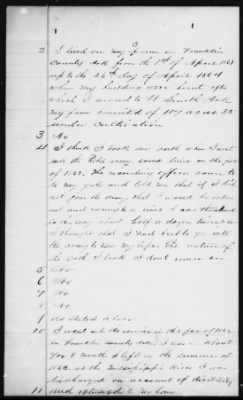 1
2 I lived on my farm in Franklin
County Ark from the 1st of April 1861
up to the 28th day of April 1864
when my buildings were burnt after
which I moved to Ft Smith Ark
my farm consisted of 154 acres 35
under cultivation
3 No
4 I think I took an oath when I went
into the Rebel army some time in the fall
of 1862. The recruiting officer came to
to my gate and told me that if I did
not join the army that I would be taken
out and
I thought that I had best to go with
the army to save my life. The nature of
the oath I took I don't
5 No
6 No
7 No
8 No
9 As stated above
10 I went into the service in the fall of 1862
in Franklin county I was in about
7 or 8 months & left in the summer of
at the Mississippi river I was
discharged on account of disability
and returned to my home
11